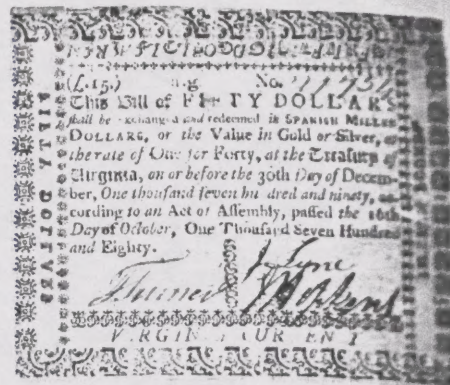 (£.15.) No. 11754
This Bill of FIFTY DOLLARS
shall be exchanged and redeemed in SPANISH MILLED
DOLLARS, or the Value in Gold or Silver, at
the rate of One for Forty, at the Treasury of
Virginia, on or before the 30th Day of Decem-
ber, One thousand seven hundred and ninety, ac-
cording to an Act of Assembly, passed the 16th
Day of October, One Thousand Seven Hundred
and Eighty.
J Lyne
J Turner J Hopkins
VIRGINIA CURRENCY
FIFTY DOLLARS